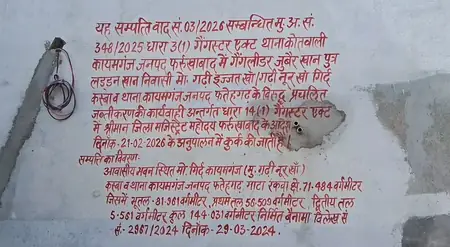 यह सम्पत्ति वाद सं. 03/2026 सम्बन्धित मु. अ. सं.
348/2025 धारा 3(1) गैंगस्टर एक्ट थाना कोतवाली
कायमगंज जनपद फर्रुखाबाद में गैंगलीडर जुबैर खान पुत्र
लड्डन खान निवासी मो. गढी इज्जत खां/गढी नूर खां गिर्द
कस्बा व थाना कायमगंज जनपद फतेहगढ़ के विरुद्ध प्रचलित
जब्तीकरण की कार्यवाही अन्तर्गत धारा 14(1) गैंगस्टर एक्ट
में श्रीमान जिला मजिस्ट्रेट महोदय फर्रुखाबाद के आदेश
दिनांक-21-02-2026 के अनुपालन में कुर्क की जाती है
सम्पत्ति का विवरण-
आवासीय भवन स्थित मो. गिर्द कायमगंज (मु. गढी नूर खाँ)
कस्बा व थाना कायमगंज जनपद फतेहगढ़, गाटा रकबा से. 71.484 वर्गमीटर
जिसमें भूतल- 81.961 वर्गमीटर, प्रथम तल 56.509 वर्गमीटर, द्वितीय तल
5-561 वर्गमीटर कुल 144.031 वर्गमीटर निर्मित बैनामा विलेख सं
सं.-2967/2024 दिनांक-29-03-2024.